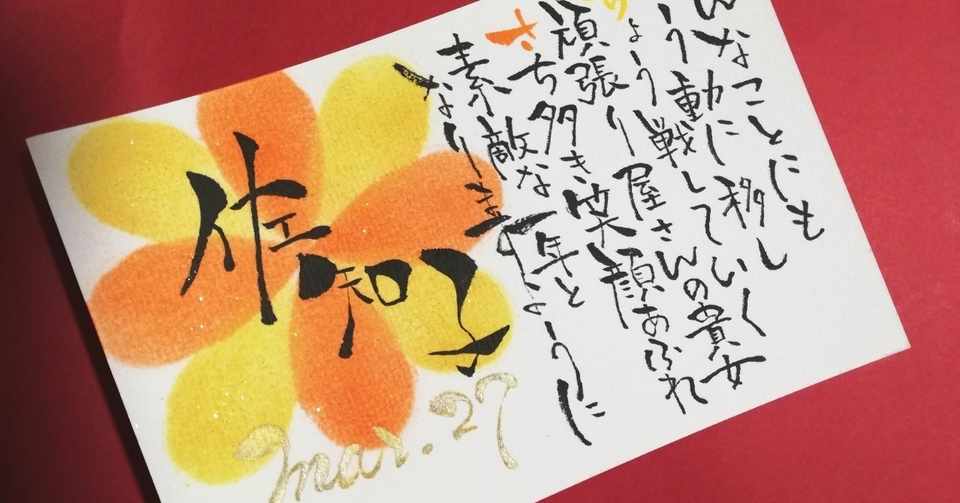 んなことにも
う動に移し
ょう戦していく
頑張り屋さんの貴女
さち多き笑顔あふれ
素敵な一年と
なりますように
佐知子
Mar.27